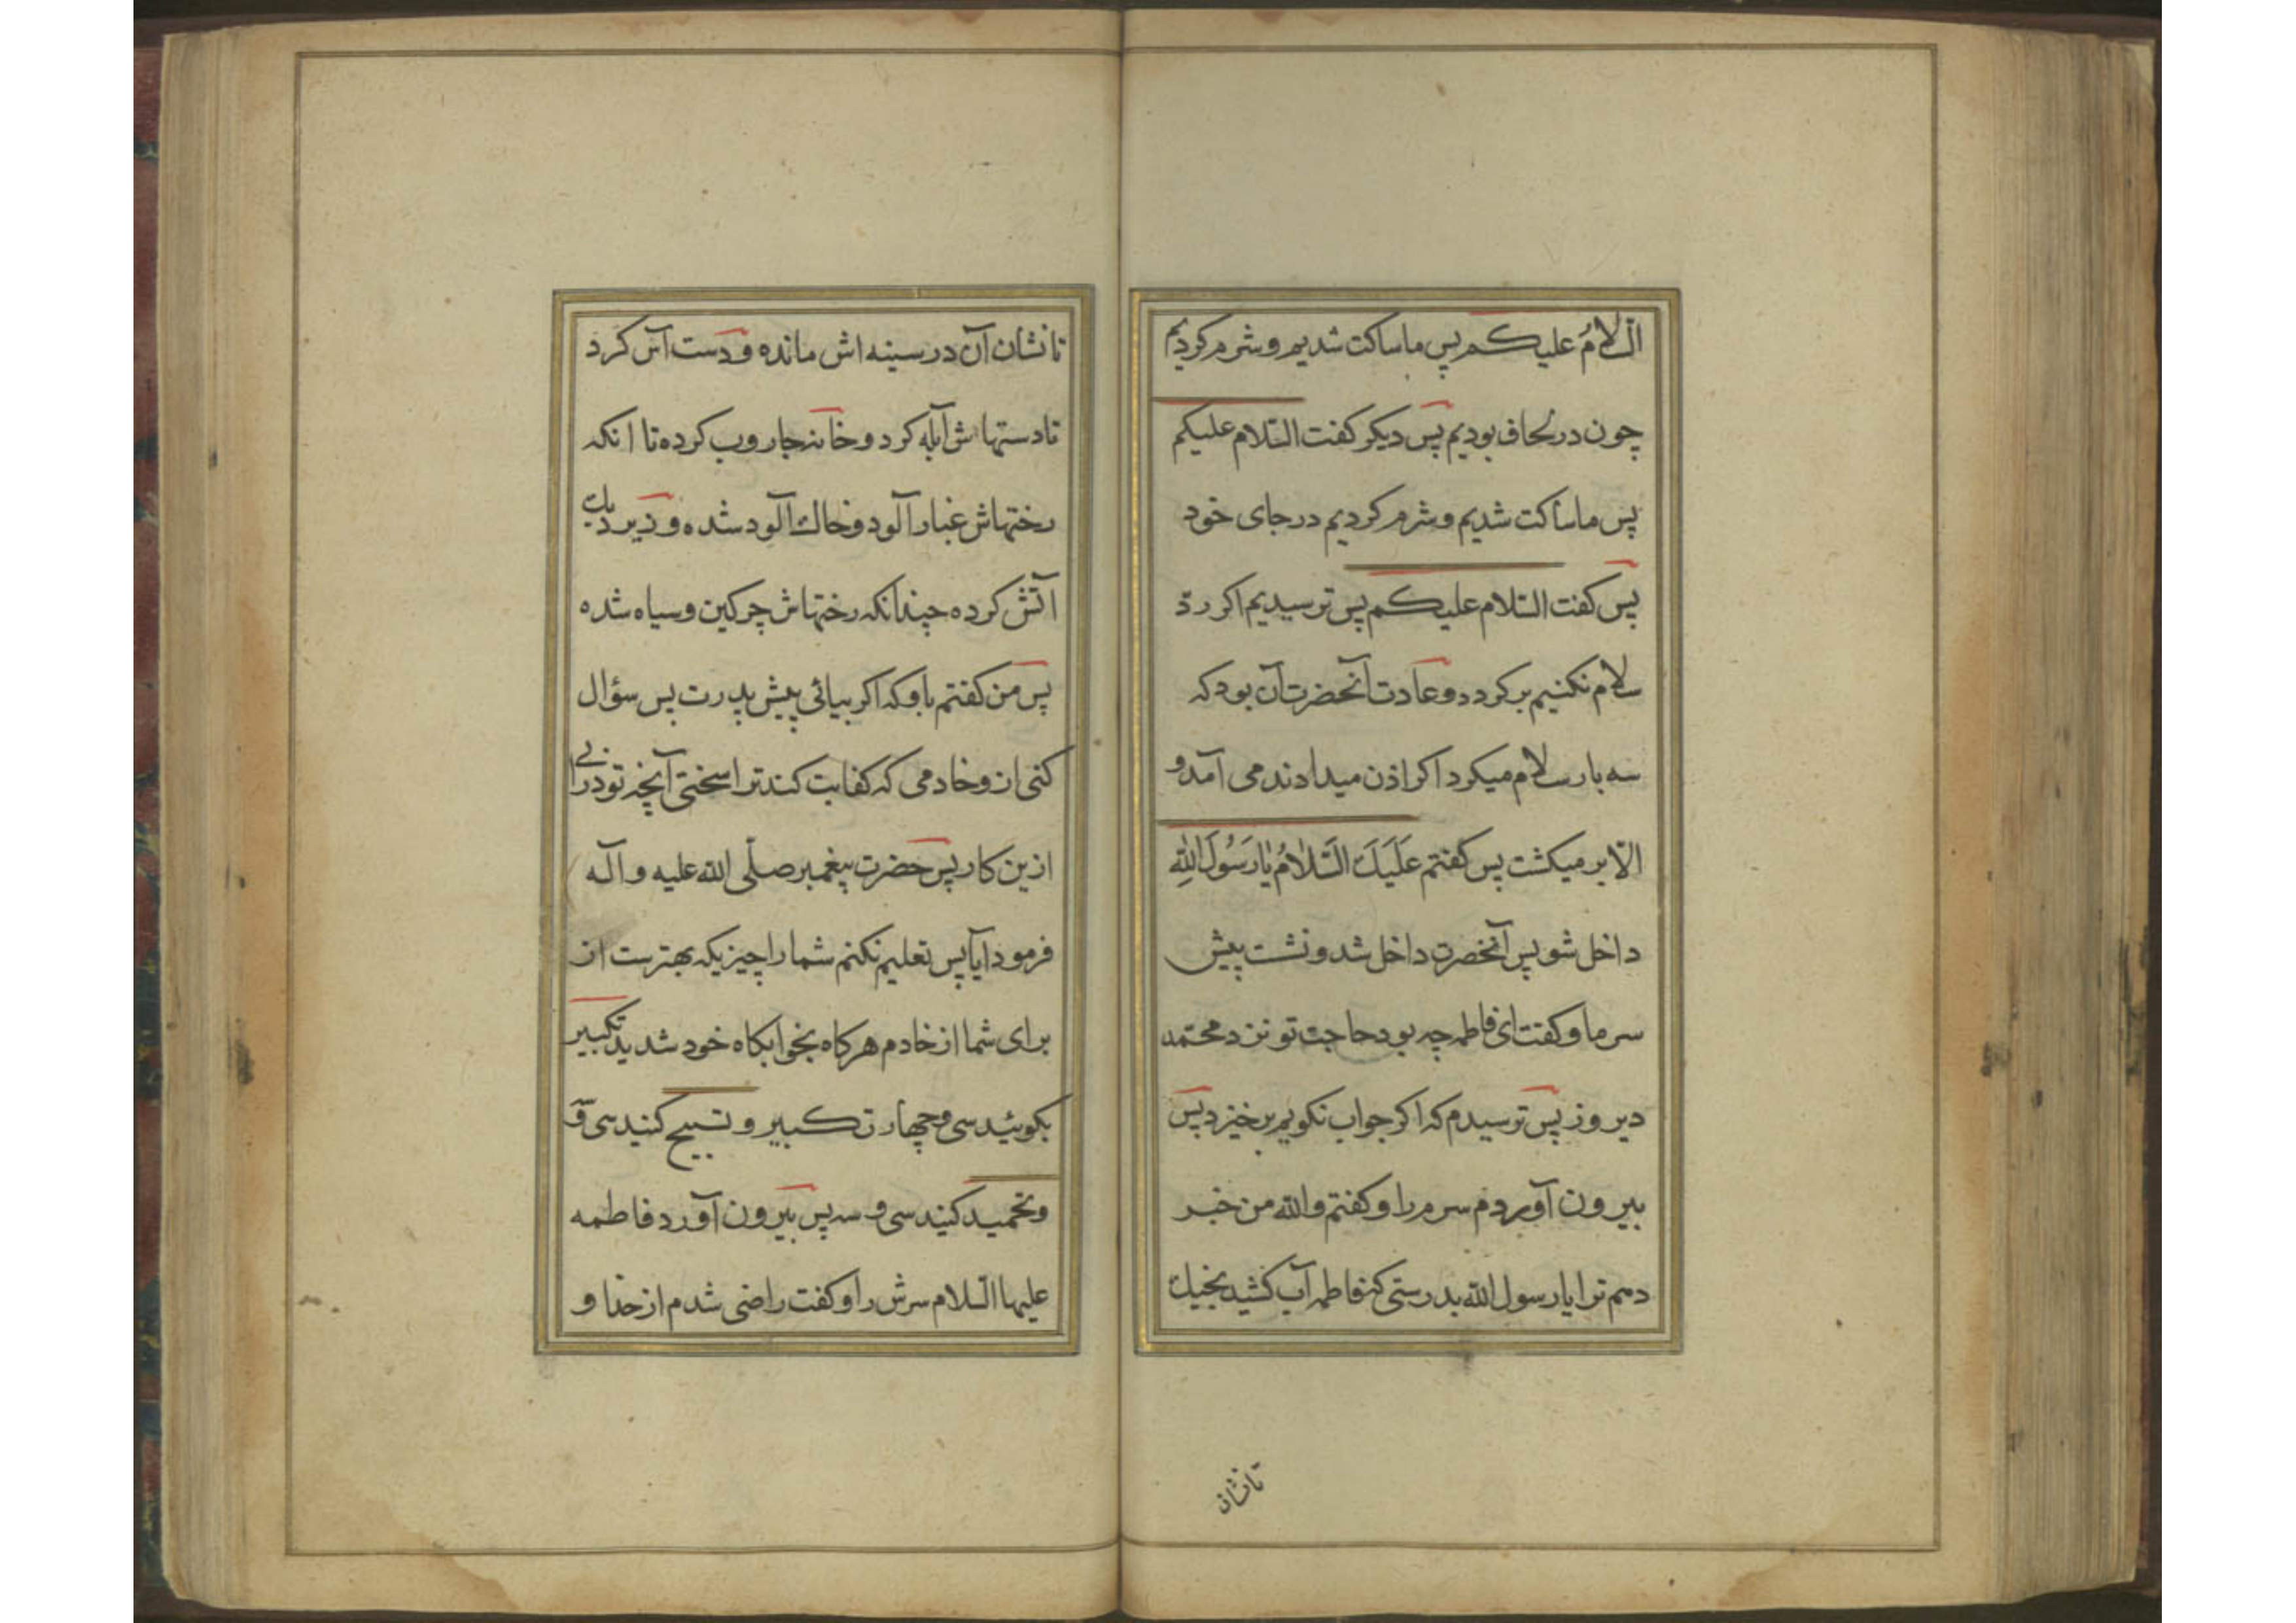 السلامُ علیکم پس ما ساکت شدیم و شرم کردیم
چون در لحاف بودیم پس دیکر کفت السّلام علیکم
پس ما ساکت شدیم و شرم کردیم در جای خود
پس کفت السّلام علیکم پس ترسیدیم اکر ردّ
سلام نکنیم برکردد و عادت آنحضرت آن بود که
سه بار سلام میکرد اکر اذن میدادند می آمد و
الّا بر میکشت پس کفتم عَلَیَكَ السَّلامُ یا رَسُولَ اللهِ
داخل شو پس آنحضرت داخل شد و نشت پیش
سر ما و کفت ای فاطمه چه بود حاجت تو نزد محتمد
دیروز پس ترسیدم که اکر جواب نکویم برخیزد پس
بیرون آوردم سرم را و کفتم والله من خبر
دهم ترا یا رسول الله بدرستی که فاطمه آب کشید بخیك
تا نشان
تا نشان آن در سینه اش مانده و دست آس کرد
تا دستهاش آبله کرد و خانه جاروب کرده تا انکه
رختهاش غبار آلود و خاك آلود شده و زیر دیك
اتش کرده چندانکه رختهاش چرکین و سیاه شده
پس من کفتم باو که اکر بیائی پیش پدرت پس سؤال
کنی ازو خادمی که کفایت کند ترا سختی آنچه تو درانی
ازین کار پس حضرت پیغمبر صلّی الله علیه و آله
فرمود آیا پس تعلیم نکنم شما را چیزیکه بهترست از
برای شما از خادم هر کاه بخوابکاه خود شدید تکبیر
بکوئید سی و چهار تکبیر و تسبیح کنید سی و
و تحمید کنید سی و سه پس بیرون آورد فاطمه
علیها السّلام سرش را و کفت راضی شدم از خدا و